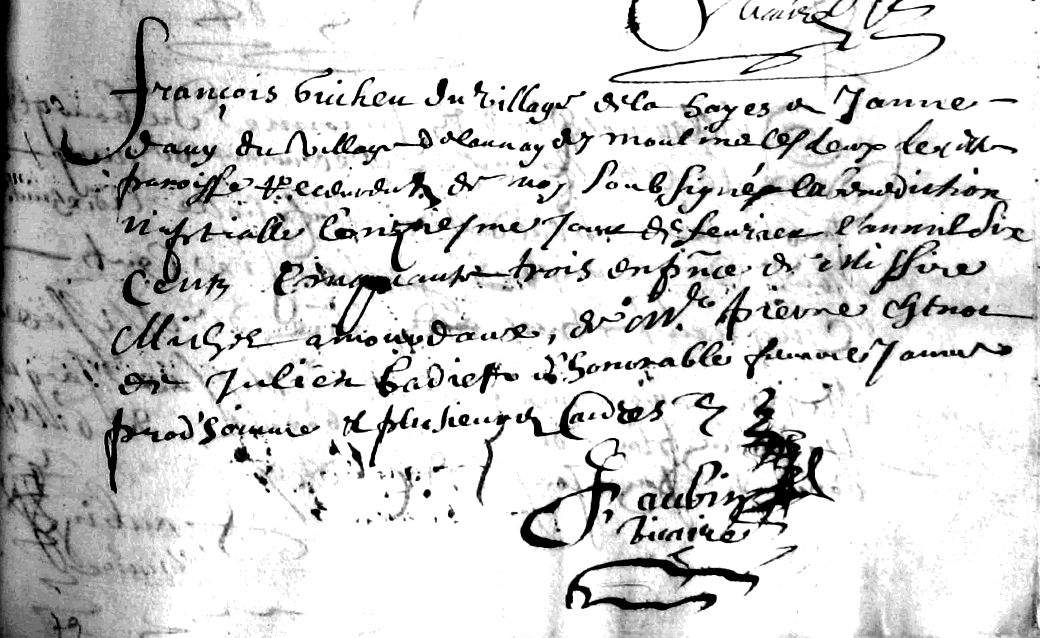 vicaire
françois Guiheu du village de la hayes et Janne
dauy du village delaunay des moulins les deux de cette
paroisse Receurent de moy soubsigné la benediction
nuptialle le onziesme Jour de feurier l'an mil six
cents cinquante trois en pñce de Missire
Michel amourdaux, de Mr pierre chenot
de Julien Badier honorable femme Janne
prod'homme et plusieurs autres
F aubin
vicaire